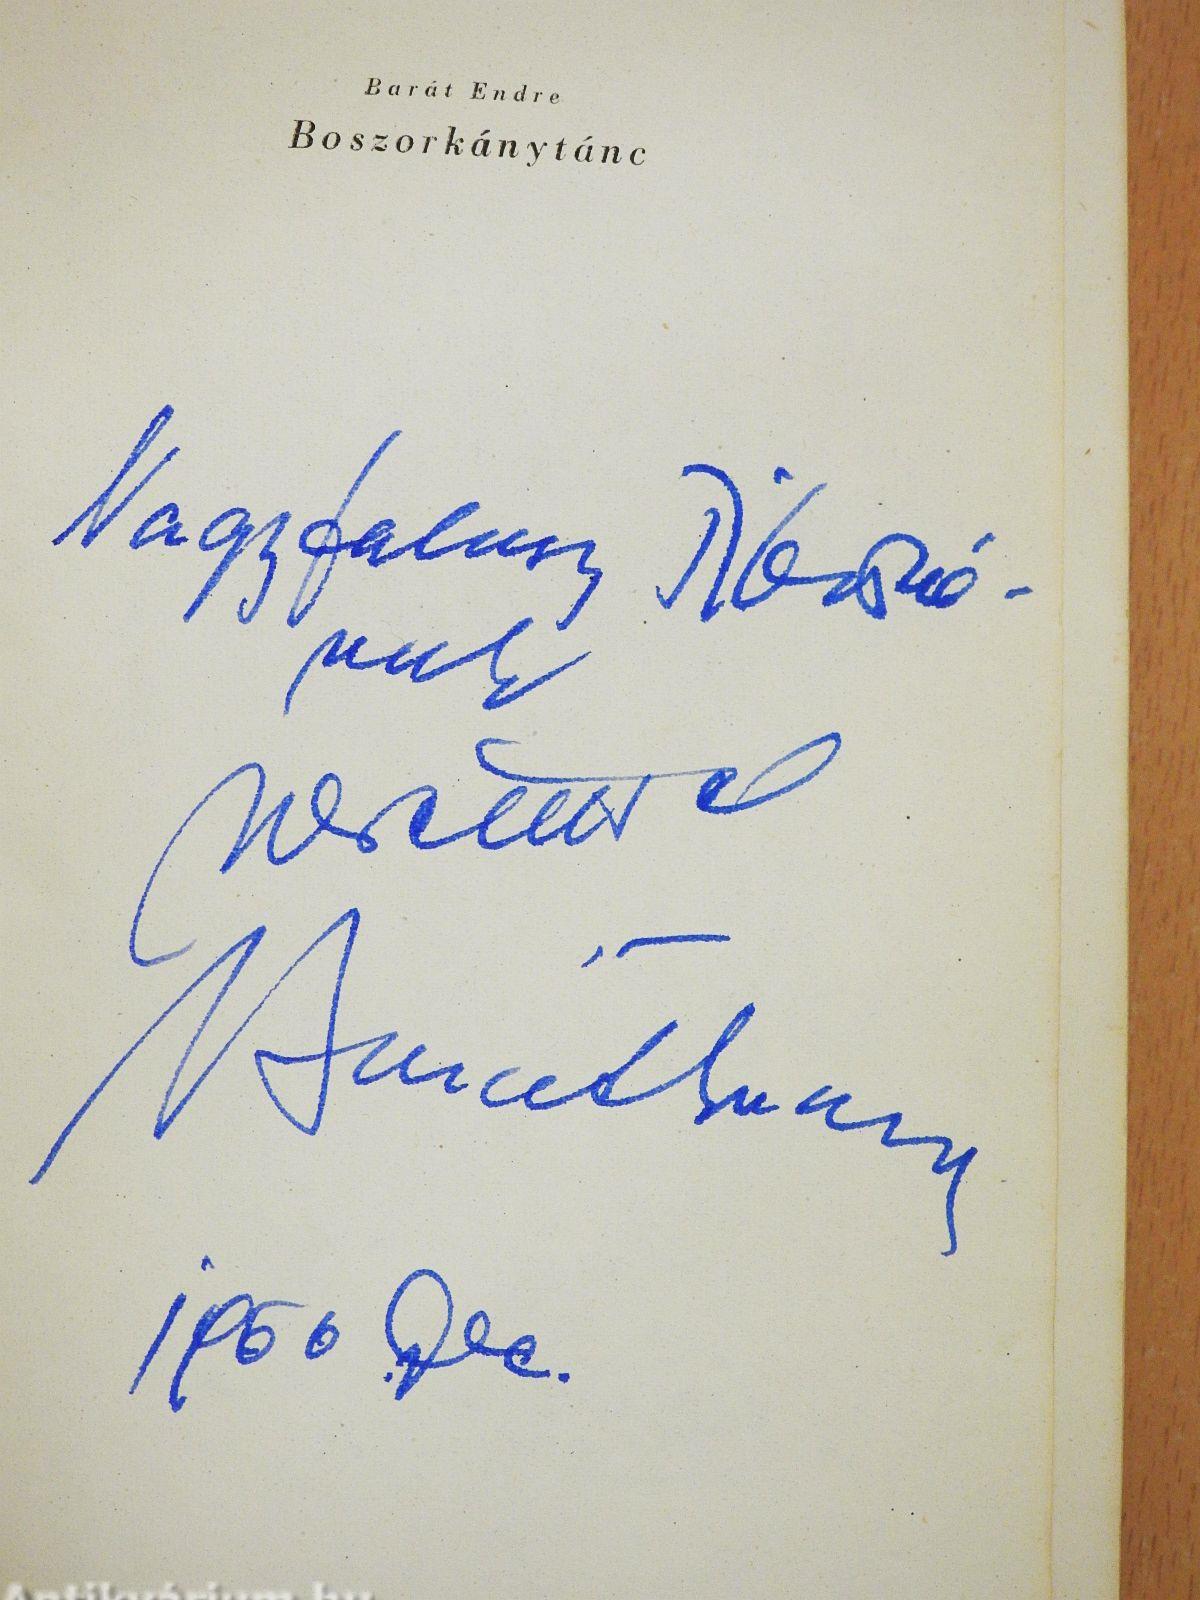 Barát Endre
Boszorkánytánc
Nagyfalusy Jenő-
nek
szeretettel
Barát Endre
1966 Dec.
Antikvárium.hu